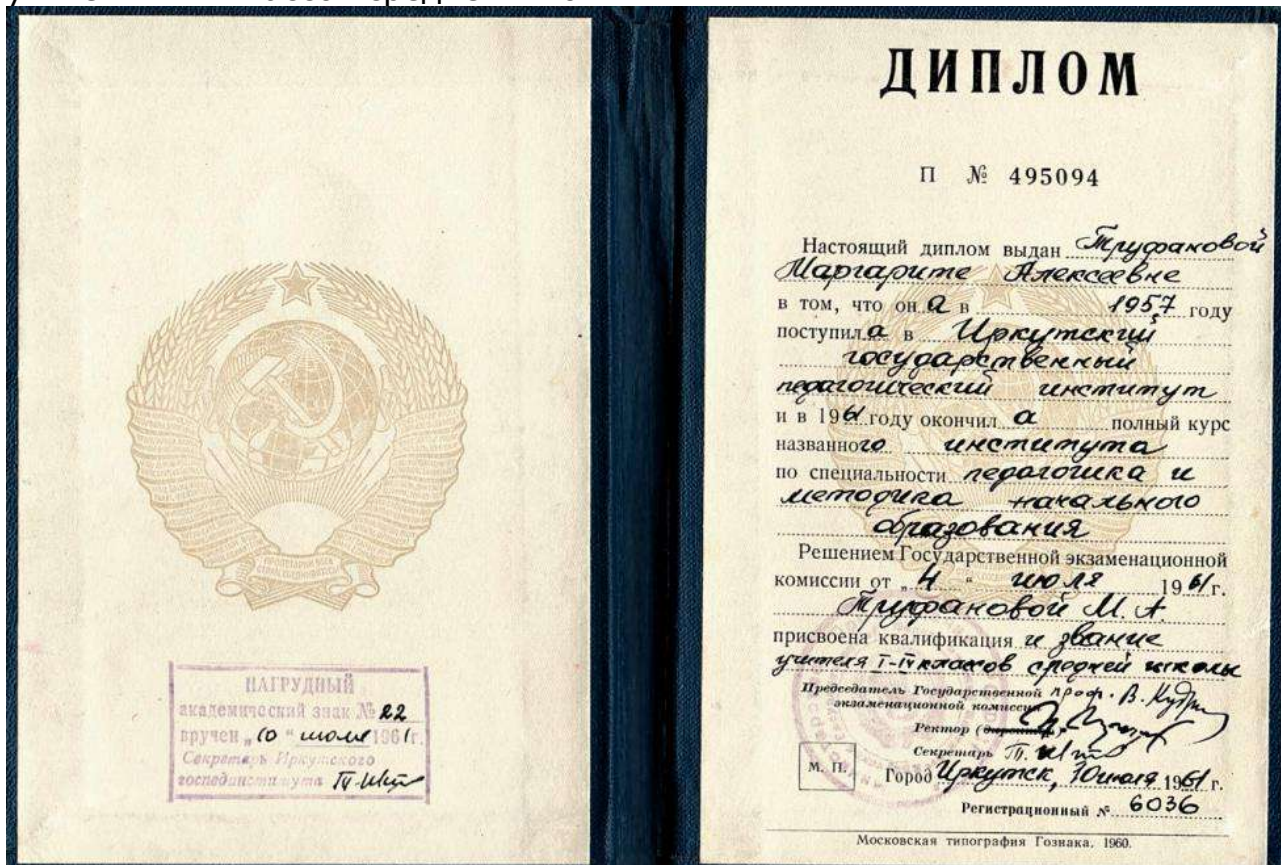 НАГРУДНЫЙ
академический знак № 22
вручен „10“ июля 1961г.
Секретарь Иркутского
госпединститута
ДИПЛОМ
П № 495094
Настоящий диплом выдан Труфановой
Маргарите Алексеевне
в том, что она в 1957 году
поступила в Иркутский
государственный
педагогический институт
и в 1961 году окончила полный курс
названного института
по специальности педагогика и
методика начального
образования
Решением Государственной экзаменационной
комиссии от „4“ июля 1961г.
Труфановой М. А.
присвоена квалификация и звание
учителя I-IV классов средней школы
Председатель Государственной проф. В.
экзаменационной комиссии
Ректор (директор)
Секретарь
М. П.
Город Иркутск, 10 июля 1961 г.
Регистрационный № 6036
Московская типография Гознака, 1960.